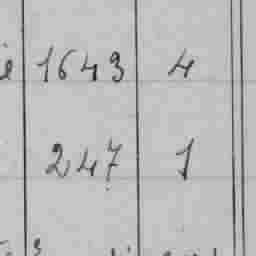 1643 4
247 1